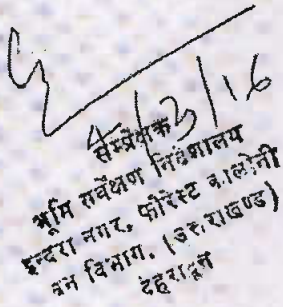 4/3/16
संप्रेक्षक
भूमि सर्वेक्षण निदेशालय
इन्दरा नगर, फोरेस्ट कालोनी
वन विभाग, (उत्तराखण्ड)
देहरादून